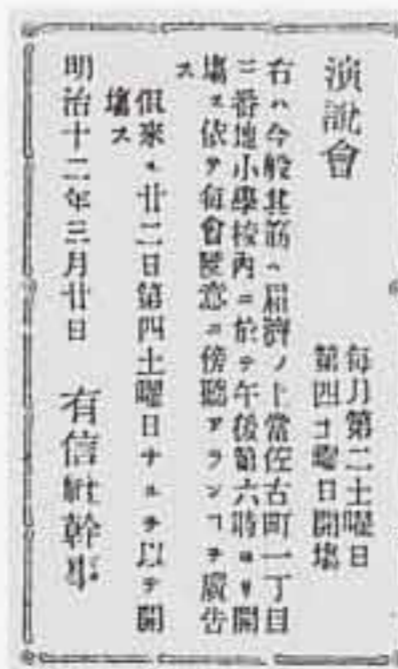 演説會
每月第二土曜日
第四土曜日開塲
右ハ今般其筋ヘ屆濟ノ上當佐古町一丁目
二番地小學校內ニ於テ午後第六時ヨリ開
塲ス依テ每會隨意ニ傍聽アランヿヲ廣告
ス
但來ル廿二日第四土曜日ナルヲ以テ開
塲ス
明治十二年三月廿日
有信社幹事